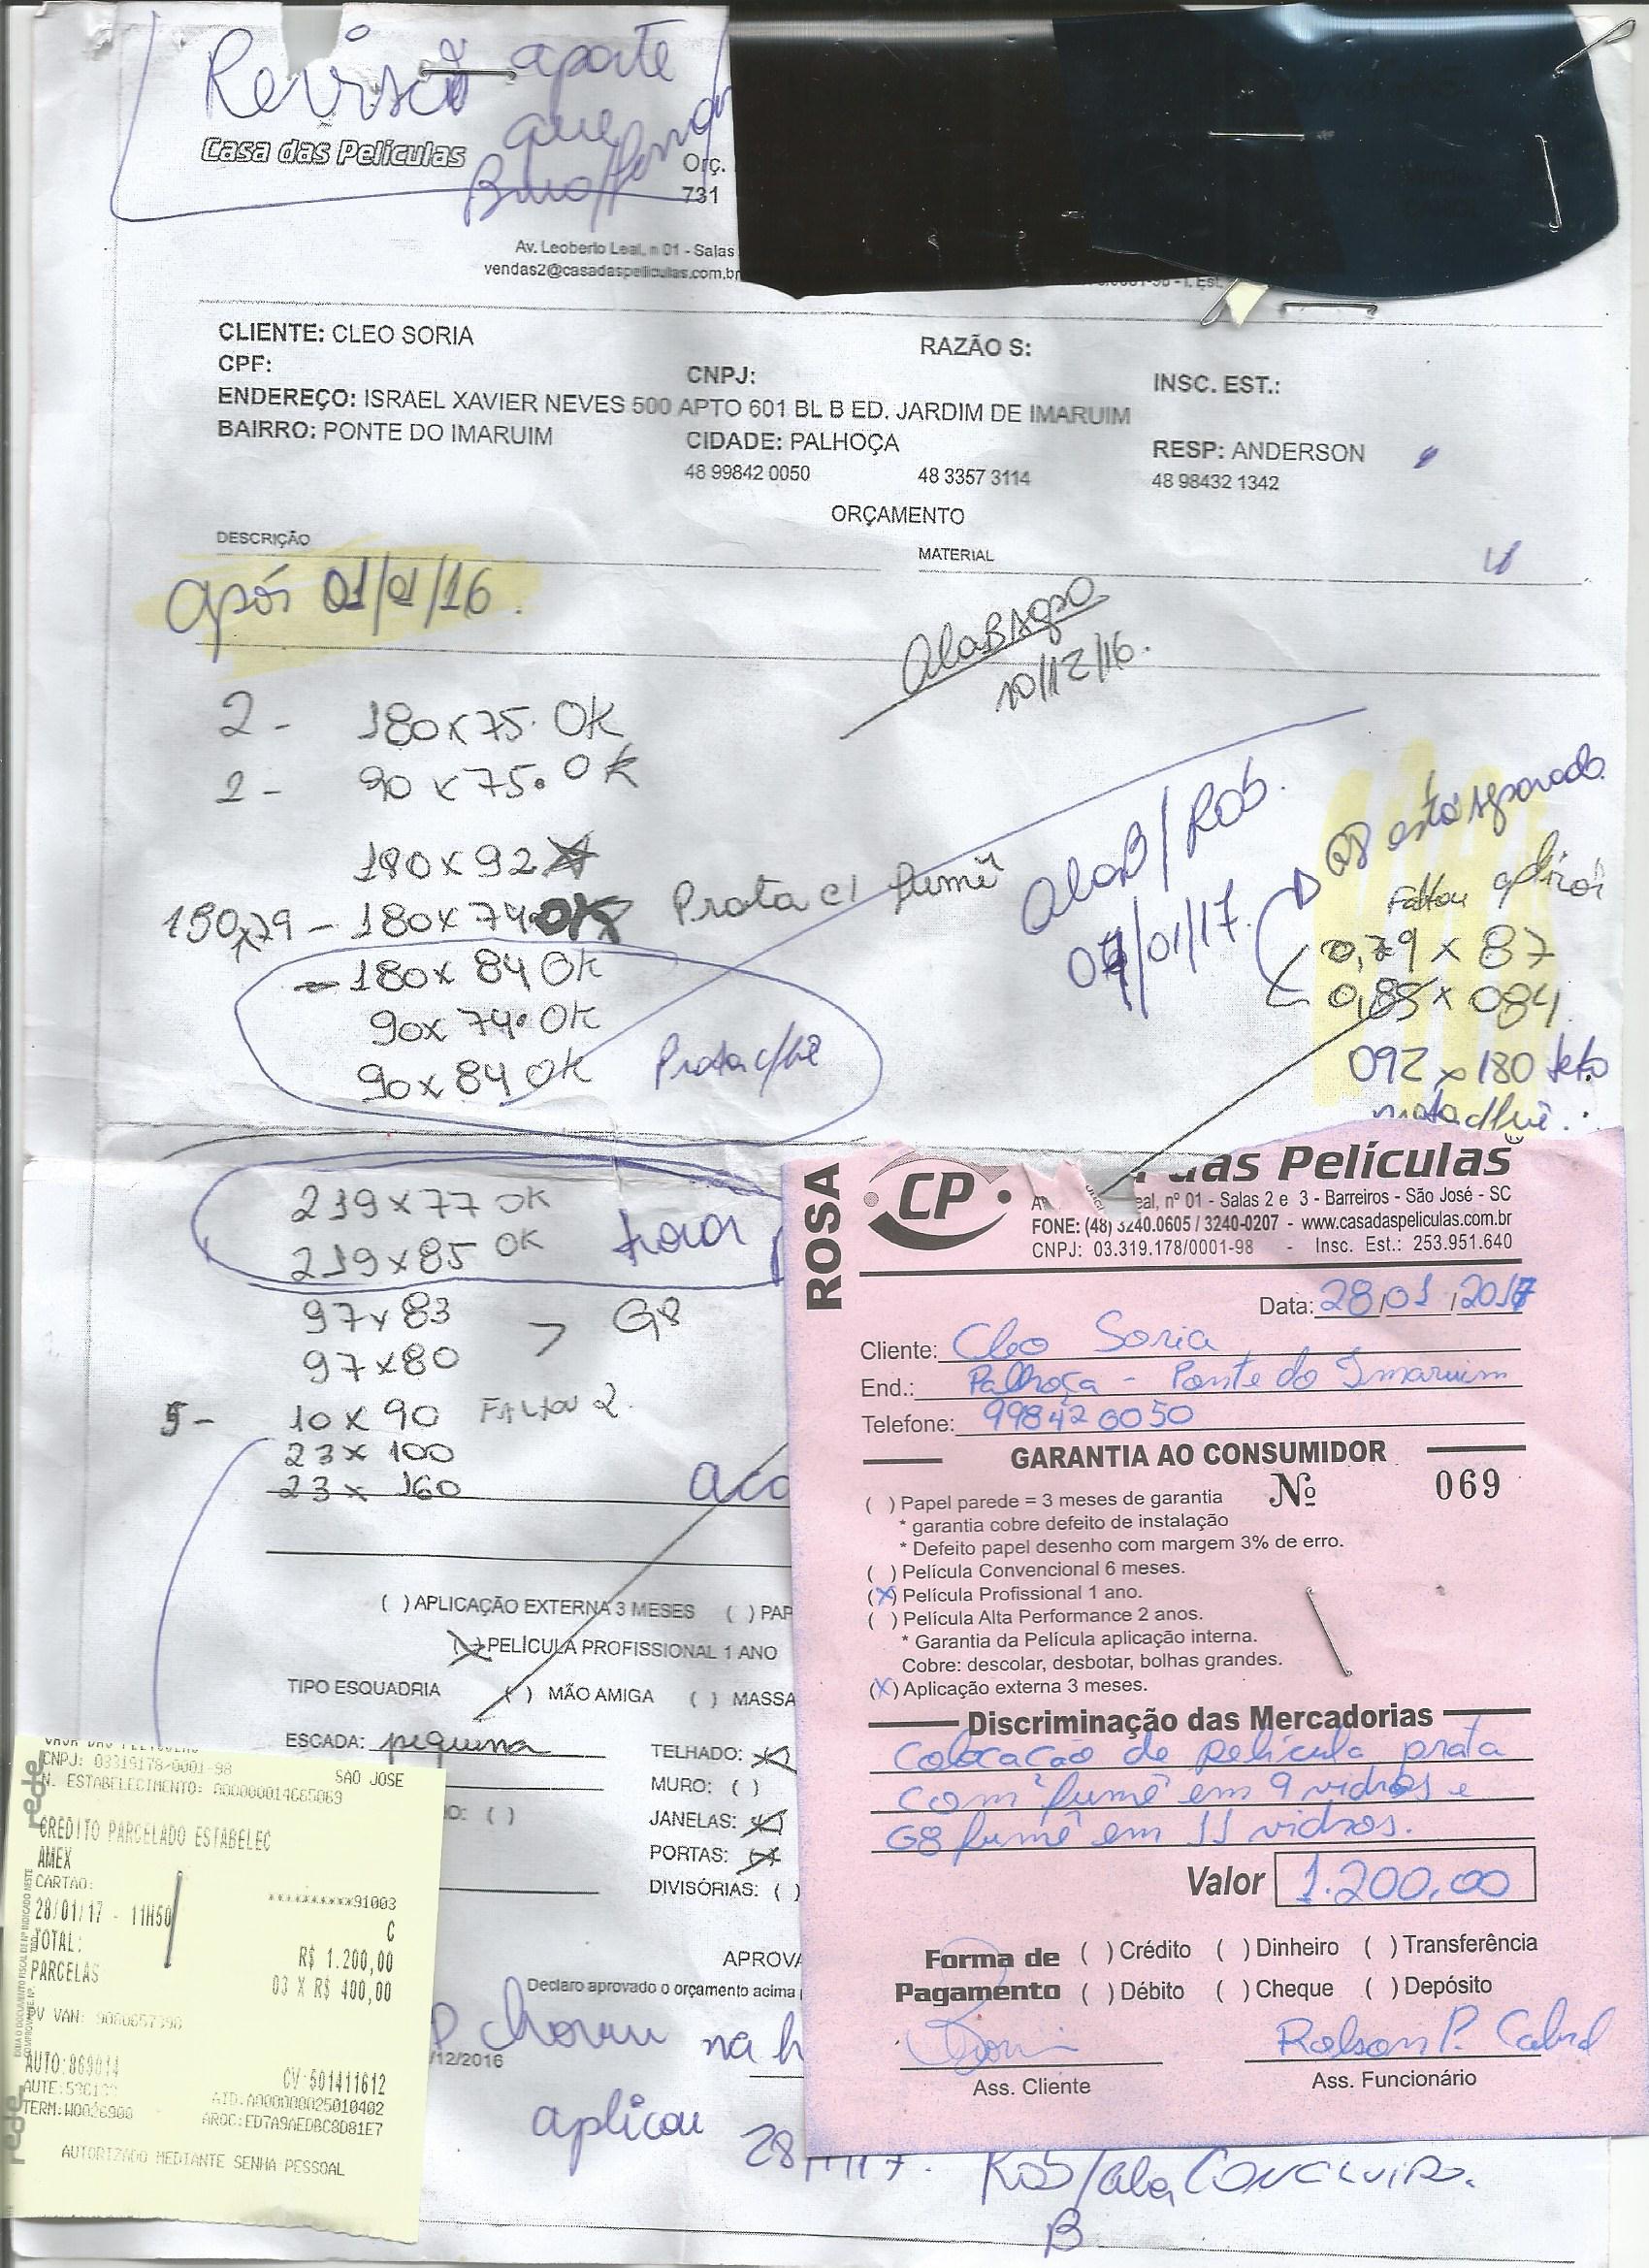 Revisão aparte
que
Casa das Películas
Orç.
731
Av. Leoberto Leal, n 01 - Salas
vendas2@casadaspeliculas.com.br
CLIENTE: CLEO SORIA
RAZÃO S:
CPF:
CNPJ:
INSC. EST.:
ENDEREÇO: ISRAEL XAVIER NEVES 500 APTO 601 BL B ED. JARDIM DE IMARUIM
BAIRRO: PONTE DO IMARUIM
CIDADE: PALHOÇA
RESP: ANDERSON
48 99842 0050
48 3357 3114
48 98432 1342
ORÇAMENTO
DESCRIÇÃO
MATERIAL
após 01/01/16.
10/12/16.
2 - 180 x 75. OK
90 x 75. OK
180 x 92
180 x 74 OK Prata c/ fumê
180 x 84 OK
90 x 74. OK
90 x 84 OK
AlaB/Rob.
/01/17.
G8 está separado
Faltou aplicar
0,79 x 87
0,85 x 084
092 x 180 teto
219 x 77 OK
219 x 85 OK
97 x 83
G8
97 x 80
5 - 10 x 90 FALTOU 2.
23 x 100
23 x 160
( ) APLICAÇÃO EXTERNA 3 MESES ( ) PAP
PELÍCULA PROFISSIONAL 1 ANO
TIPO ESQUADRIA ( ) MÃO AMIGA ( ) MASSA
ESCADA: pequena
TELHADO:
MURO: ( )
O: ( )
JANELAS:
PORTAS:
DIVISÓRIAS: ( )
APROVA
Declaro aprovado o orçamento acima
choveu na h
/12/2016
aplicou
Rob/Ala Concluiro.
B
ROSA
CP
das Películas
eal, nº 01 - Salas 2 e 3 - Barreiros - São José - SC
FONE: (48) 3240.0605 / 3240-0207 - www.casadaspeliculas.com.br
CNPJ: 03.319.178/0001-98 - Insc. Est.: 253.951.640
Data: 28/01/2017
Cliente: Cleo Soria
End.: Palhoça - Ponte do Imaruim
Telefone: 998420050
GARANTIA AO CONSUMIDOR
( ) Papel parede = 3 meses de garantia
Nº 069
* garantia cobre defeito de instalação
* Defeito papel desenho com margem 3% de erro.
( ) Película Convencional 6 meses.
(X) Película Profissional 1 ano.
( ) Película Alta Performance 2 anos.
* Garantia da Película aplicação interna.
Cobre: descolar, desbotar, bolhas grandes.
(X) Aplicação externa 3 meses.
Discriminação das Mercadorias
Colocação de película prata
com fumê em 9 vidros e
G8 fumê em 11 vidros.
Valor 1.200,00
Forma de Pagamento
( ) Crédito ( ) Dinheiro ( ) Transferência
( ) Débito ( ) Cheque ( ) Depósito
Robson P. Cabral
Ass. Cliente
Ass. Funcionário
rede
CNPJ: 03319178/0001-98
SAO JOSE
N. ESTABELECIMENTO: 000000014665069
CREDITO PARCELADO ESTABELEC
AMEX
CARTÃO:
**********91003
28/01/17 - 11H50
C
TOTAL:
R$ 1.200,00
PARCELAS
03 X R$ 400,00
AUTO:869014
CV:501411612
AID:A000000025010402
TERM:W0026900
ARQC:ED7A9AEDBC8D81E7
AUTORIZADO MEDIANTE SENHA PESSOAL
rede